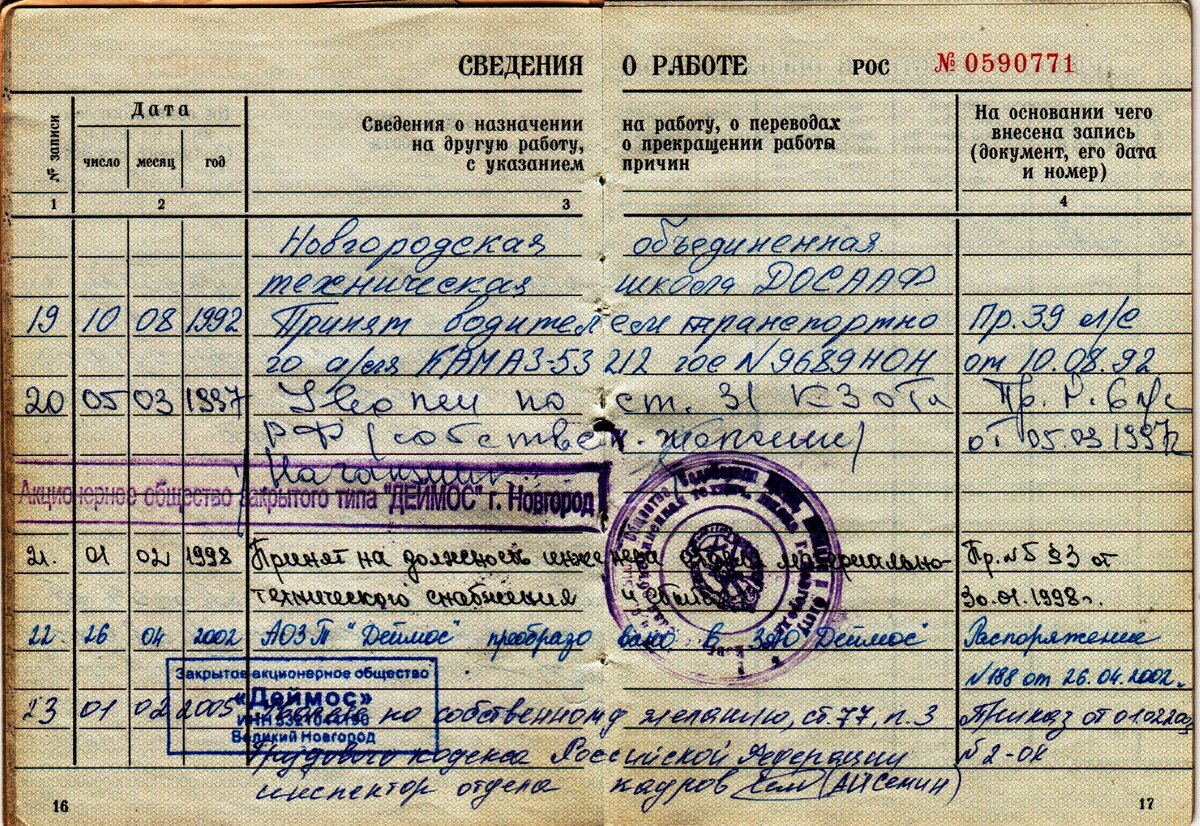 СВЕДЕНИЯ О РАБОТЕ РОС № 0590771
№ записи
Дата
число месяц год
Сведения о назначении на работу, о переводах
на другую работу, о прекращении работы
с указанием причин
На основании чего
внесена запись
(документ, его дата
и номер)
1 2 3 4
Новгородская объединенная
техническая школа ДОСААФ
19 10 08 1992 Принят водителем транспортно Пр. 39 л/с
го а/ля КАМАЗ-53212 гос № 9689 НОН от 10.08.92
20 05 03 1997 Уволен по ст. 31 КЗоТа Пр.
РФ (собствен. желании) от 05.03 1997г
Начальник
Акционерное общество закрытого типа "ДЕЙМОС" г. Новгород
21. 01 02 1998 Принят на должность инженера отдела материально- Пр. №5 §3 от
технического снабжения и сбыта 30.01.1998г.
22. 26 04 2002 АОЗТ "Деймос" преобразовано в ЗАО "Деймос" Распоряжение
№188 от 26.04.2002г.
Закрытое акционерное общество
«Деймос»
ИНН
Великий Новгород
23 01 02 2005 по собственному желанию, ст. 77, п. 3 Приказ от 01.02.2005
Трудового кодекса Российской Федерации №2-ок
инспектор отдела кадров
16 17